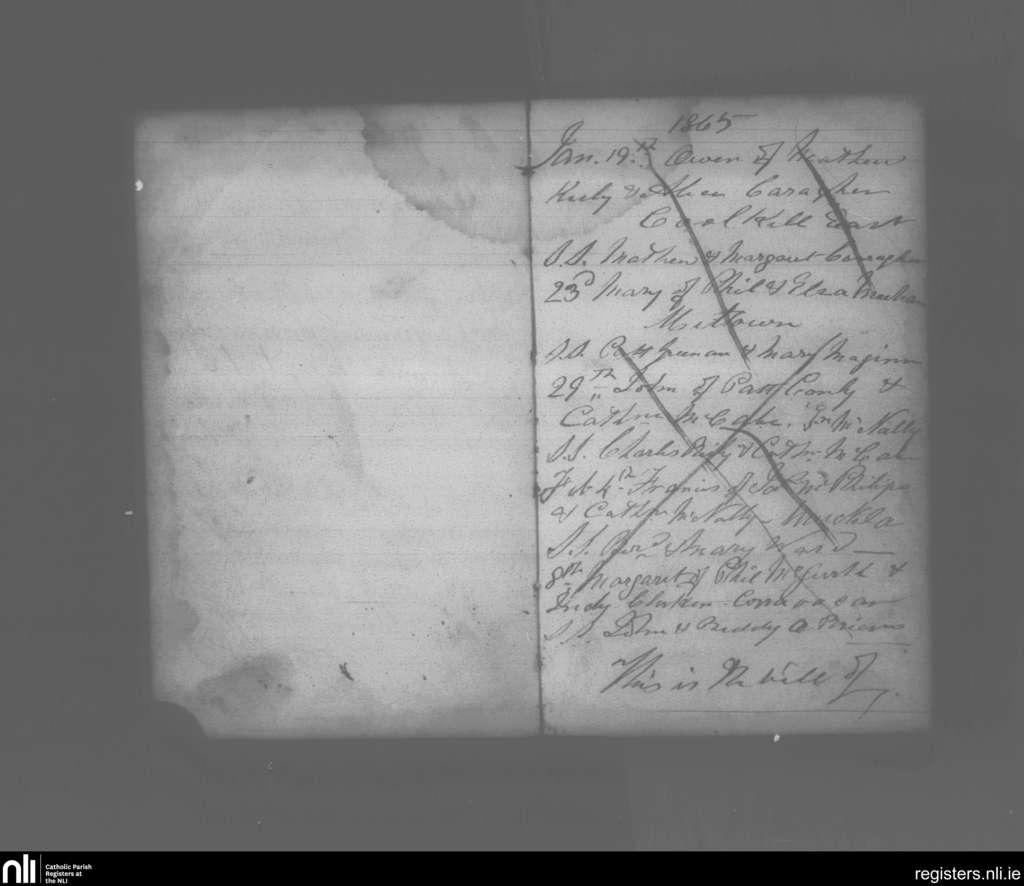 1865
Jan. 19th Owen of Mathew
& Alice Caragher
Coolkill East
S.S. Mathew & Margaret Caragher
23d Mary of Phil & Elza
Miltown
S.S. Patt & Mary Maginn
29th John of Patt Conly &
Cathne McCabe, McNally
S.S. Charls & Cathe McCabe
Feb 4th Francis of Philips
& Cathe McNally Muckla
S.S. Bernd & Mary Ward
8th Margaret of Phil McGurk &
Judy Clarken
S.S. John & Biddy O Briens
This is the bill of
nli
Catholic Parish
Registers at
the NLI
registers.nli.ie